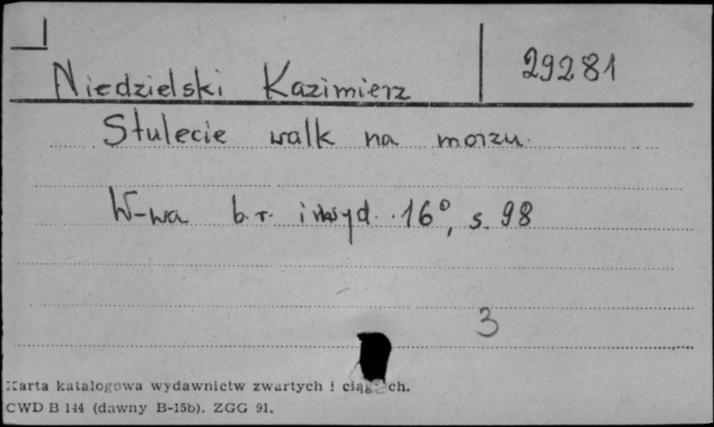 29281
Niedzielski Kazimierz
Stulecie walk na morzu.
W-wa b.r. i wyd. 16°, s. 98
3
Karta katalogowa wydawnictw zwartych i ciągłych.
CWD B 144 (dawny B-15b). ZGG 91.